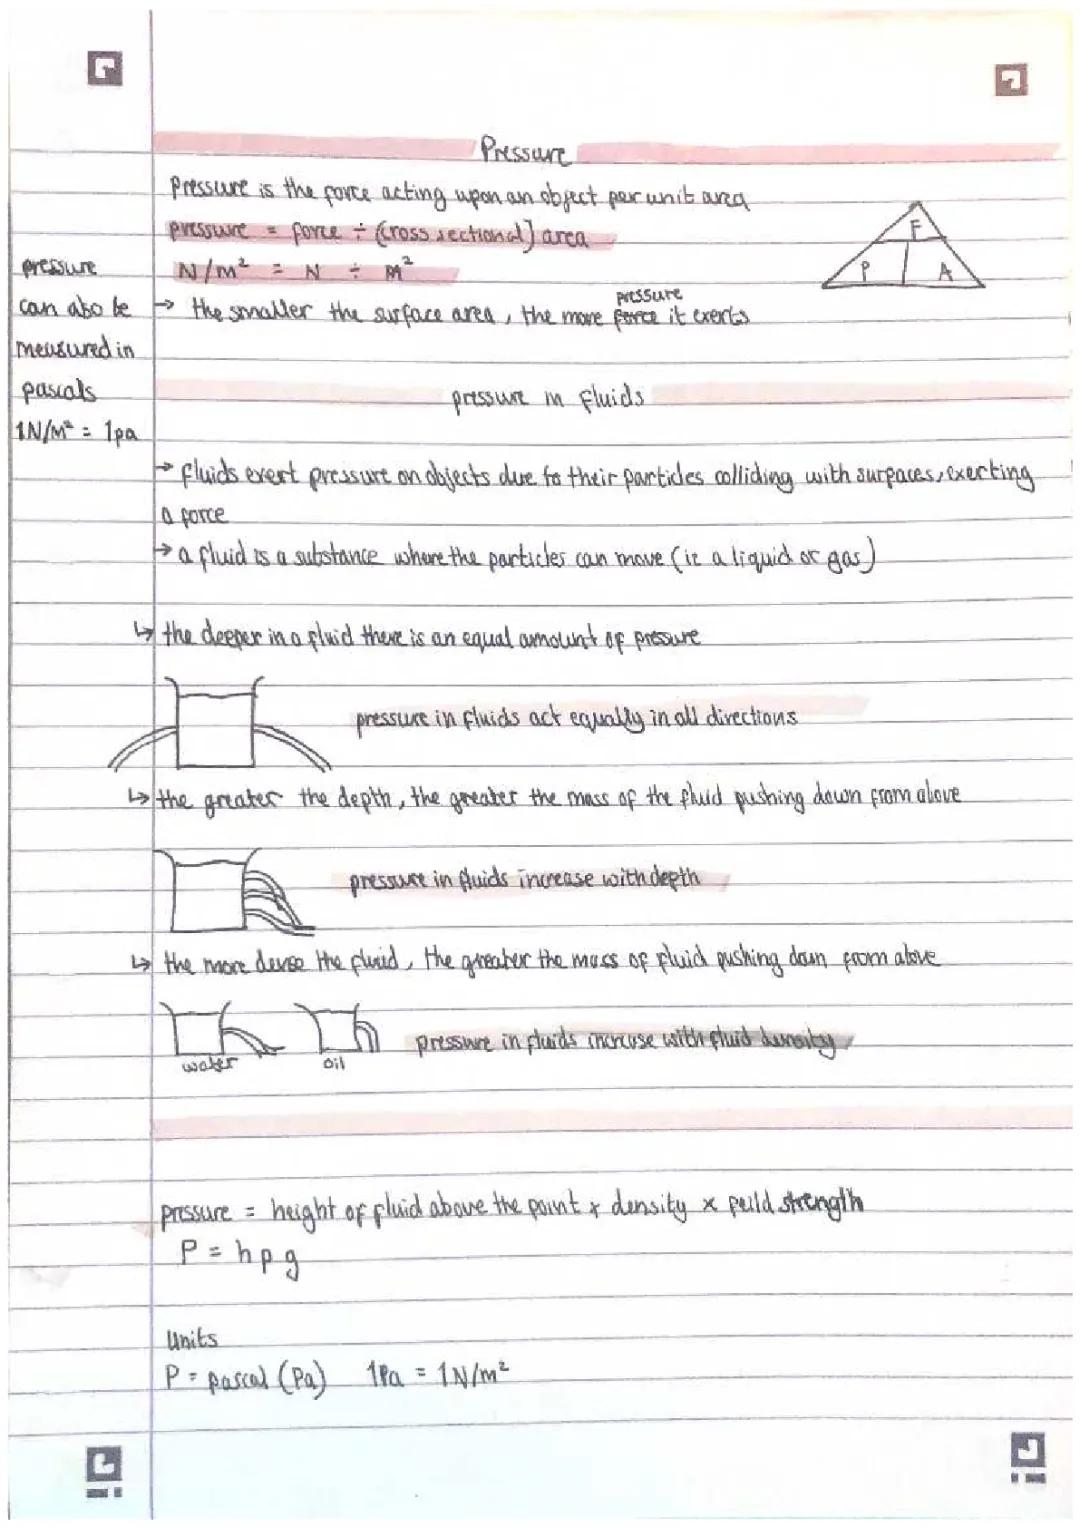 Pressure
Pressure is the force acting upon an object per unit area
pressure = force ÷ (cross sectional) area
N/m² = N ÷ m²
F
P A
pressure
can also be
measured in
pascals
1N/m² = 1pa
→ the smaller the surface area, the more force pressure it exerts
pressure in fluids
→ fluids exert pressure on objects due to their particles colliding with surfaces, exerting
a force
→ a fluid is a substance where the particles can move (ie a liquid or gas)
↳ the deeper in a fluid there is an equal amount of pressure
pressure in fluids act equally in all directions
↳ the greater the depth, the greater the mass of the fluid pushing down from above
pressure in fluids increase with depth
↳ the more dense the fluid, the greater the mass of fluid pushing down from above
water oil
pressure in fluids increase with fluid density
pressure = height of fluid above the point x density x feild strength
P = hρg
Units
P = pascal (Pa) 1Pa = 1N/m²